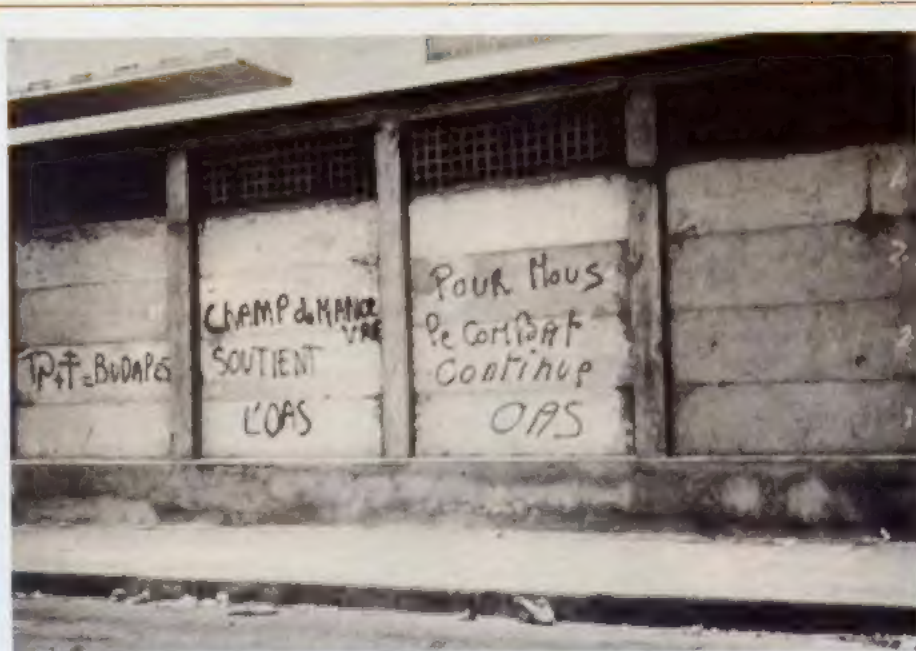 = BUDAPES
CHAMP de MANOE
VRE
SOUTIENT
L'OAS
POUR NOUS
le COMBAT
Continue
OAS